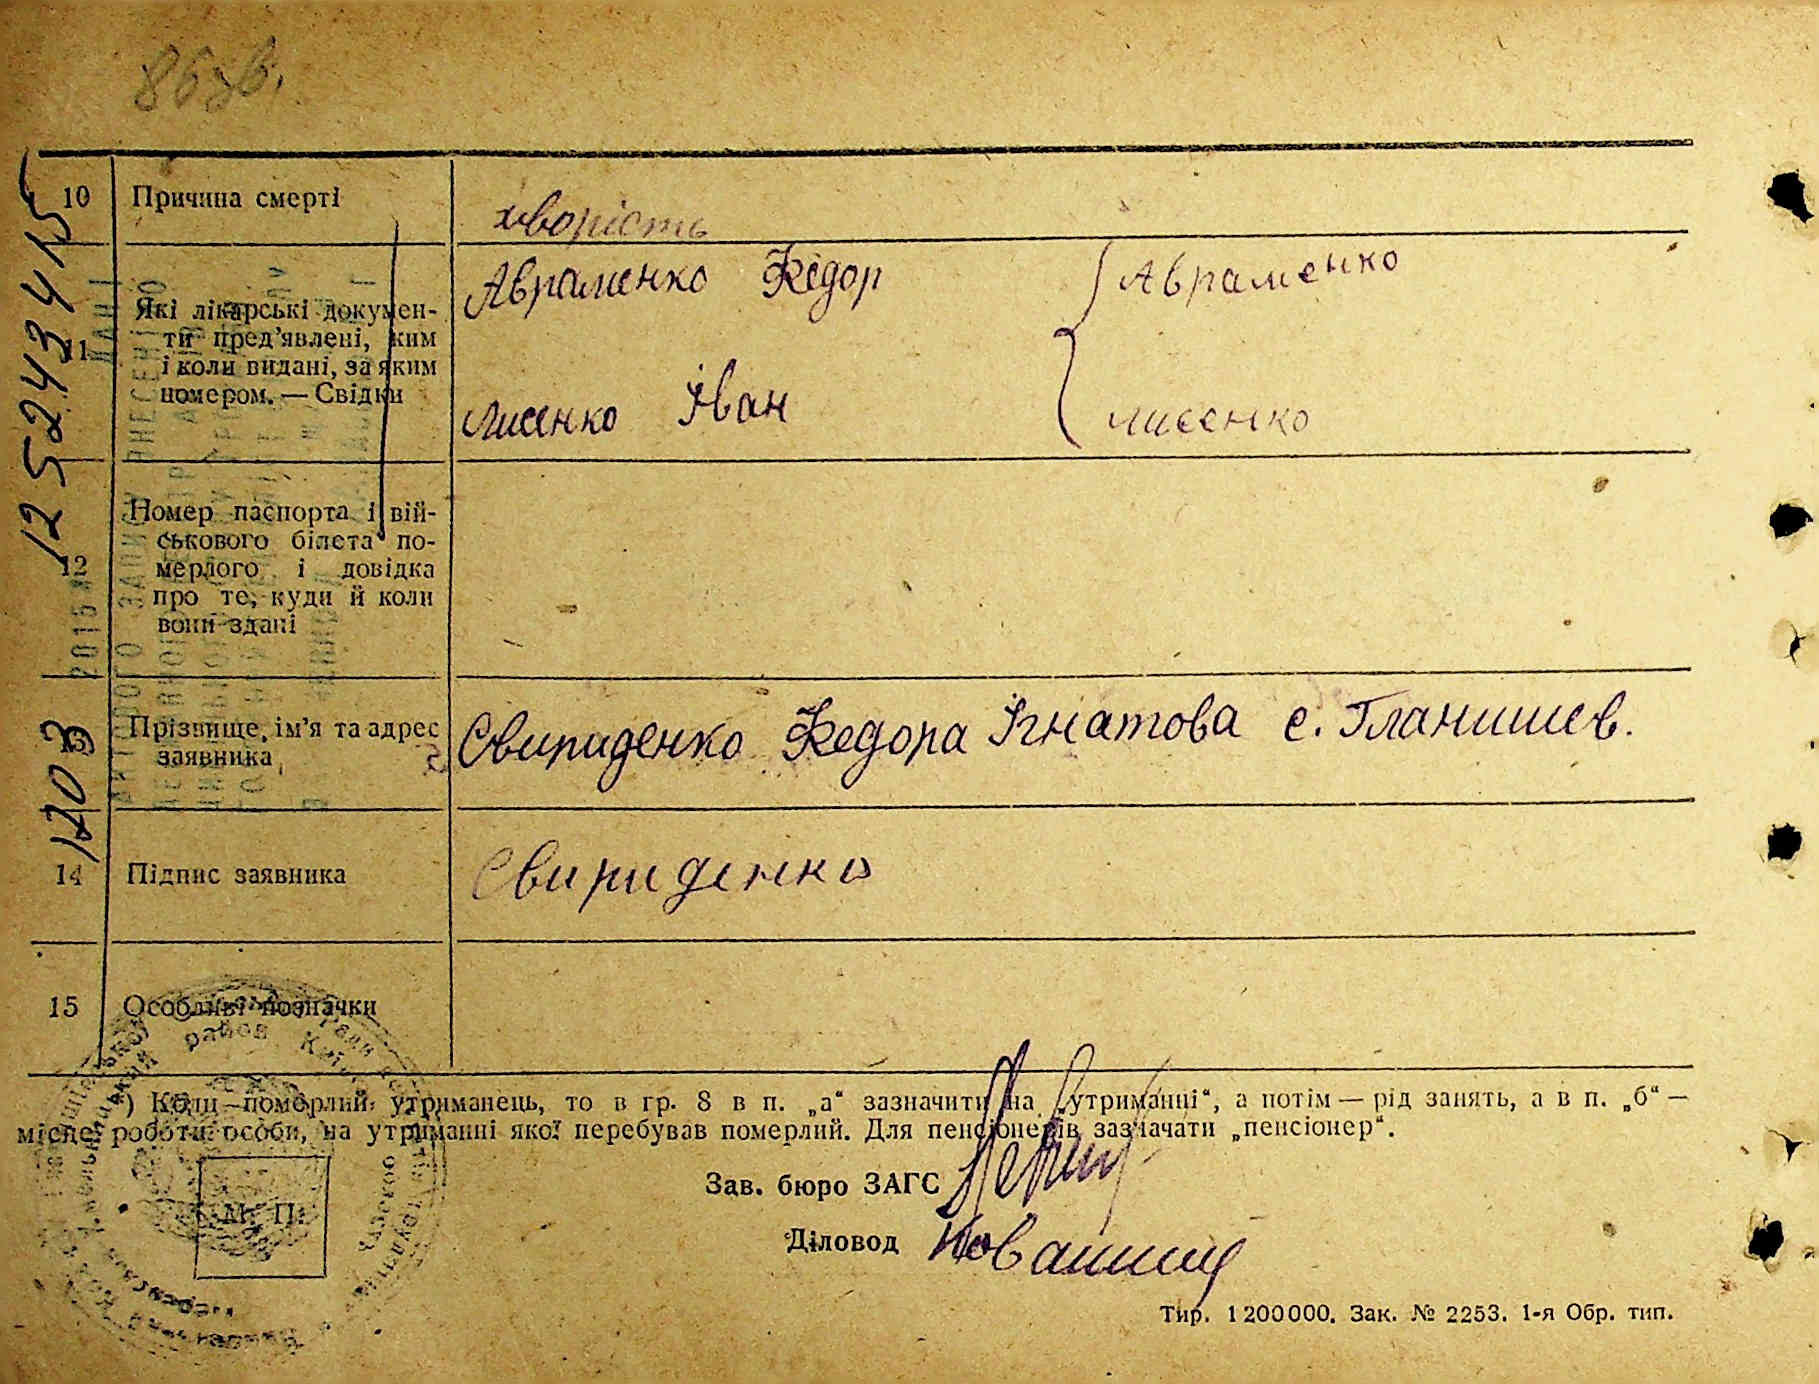 86зв.
10 Причина смерті хворість
11 Які лікарські докумен-
ти пред’явлені, ким
і коли видані, за яким
номером. — Свідки
Авраменко Федор Авраменко
Лисенко Іван Лисенко
12 Номер паспорта і вій-
ськового білета по-
мерлого і довідка
про те, куди й коли
вони здані
13 Прізвище, ім’я та адрес
заявника
Свириденко Федора Ігнатова с. Гланишев.
14 Підпис заявника Свириденко
15 Особливі позначки
*) Коли померлий утриманець, то в гр. 8 в п. „а“ зазначити на „утриманні“, а потім — рід занять, а в п. „б“ —
місце роботи особи, на утриманні якої перебував померлий. Для пенсіонерів зазначати „пенсіонер“.
Зав. бюро ЗАГС
Діловод
М. П.
Тир. 1200000. Зак. № 2253. 1-я Обр. тип.
125243415
1203
2015
район